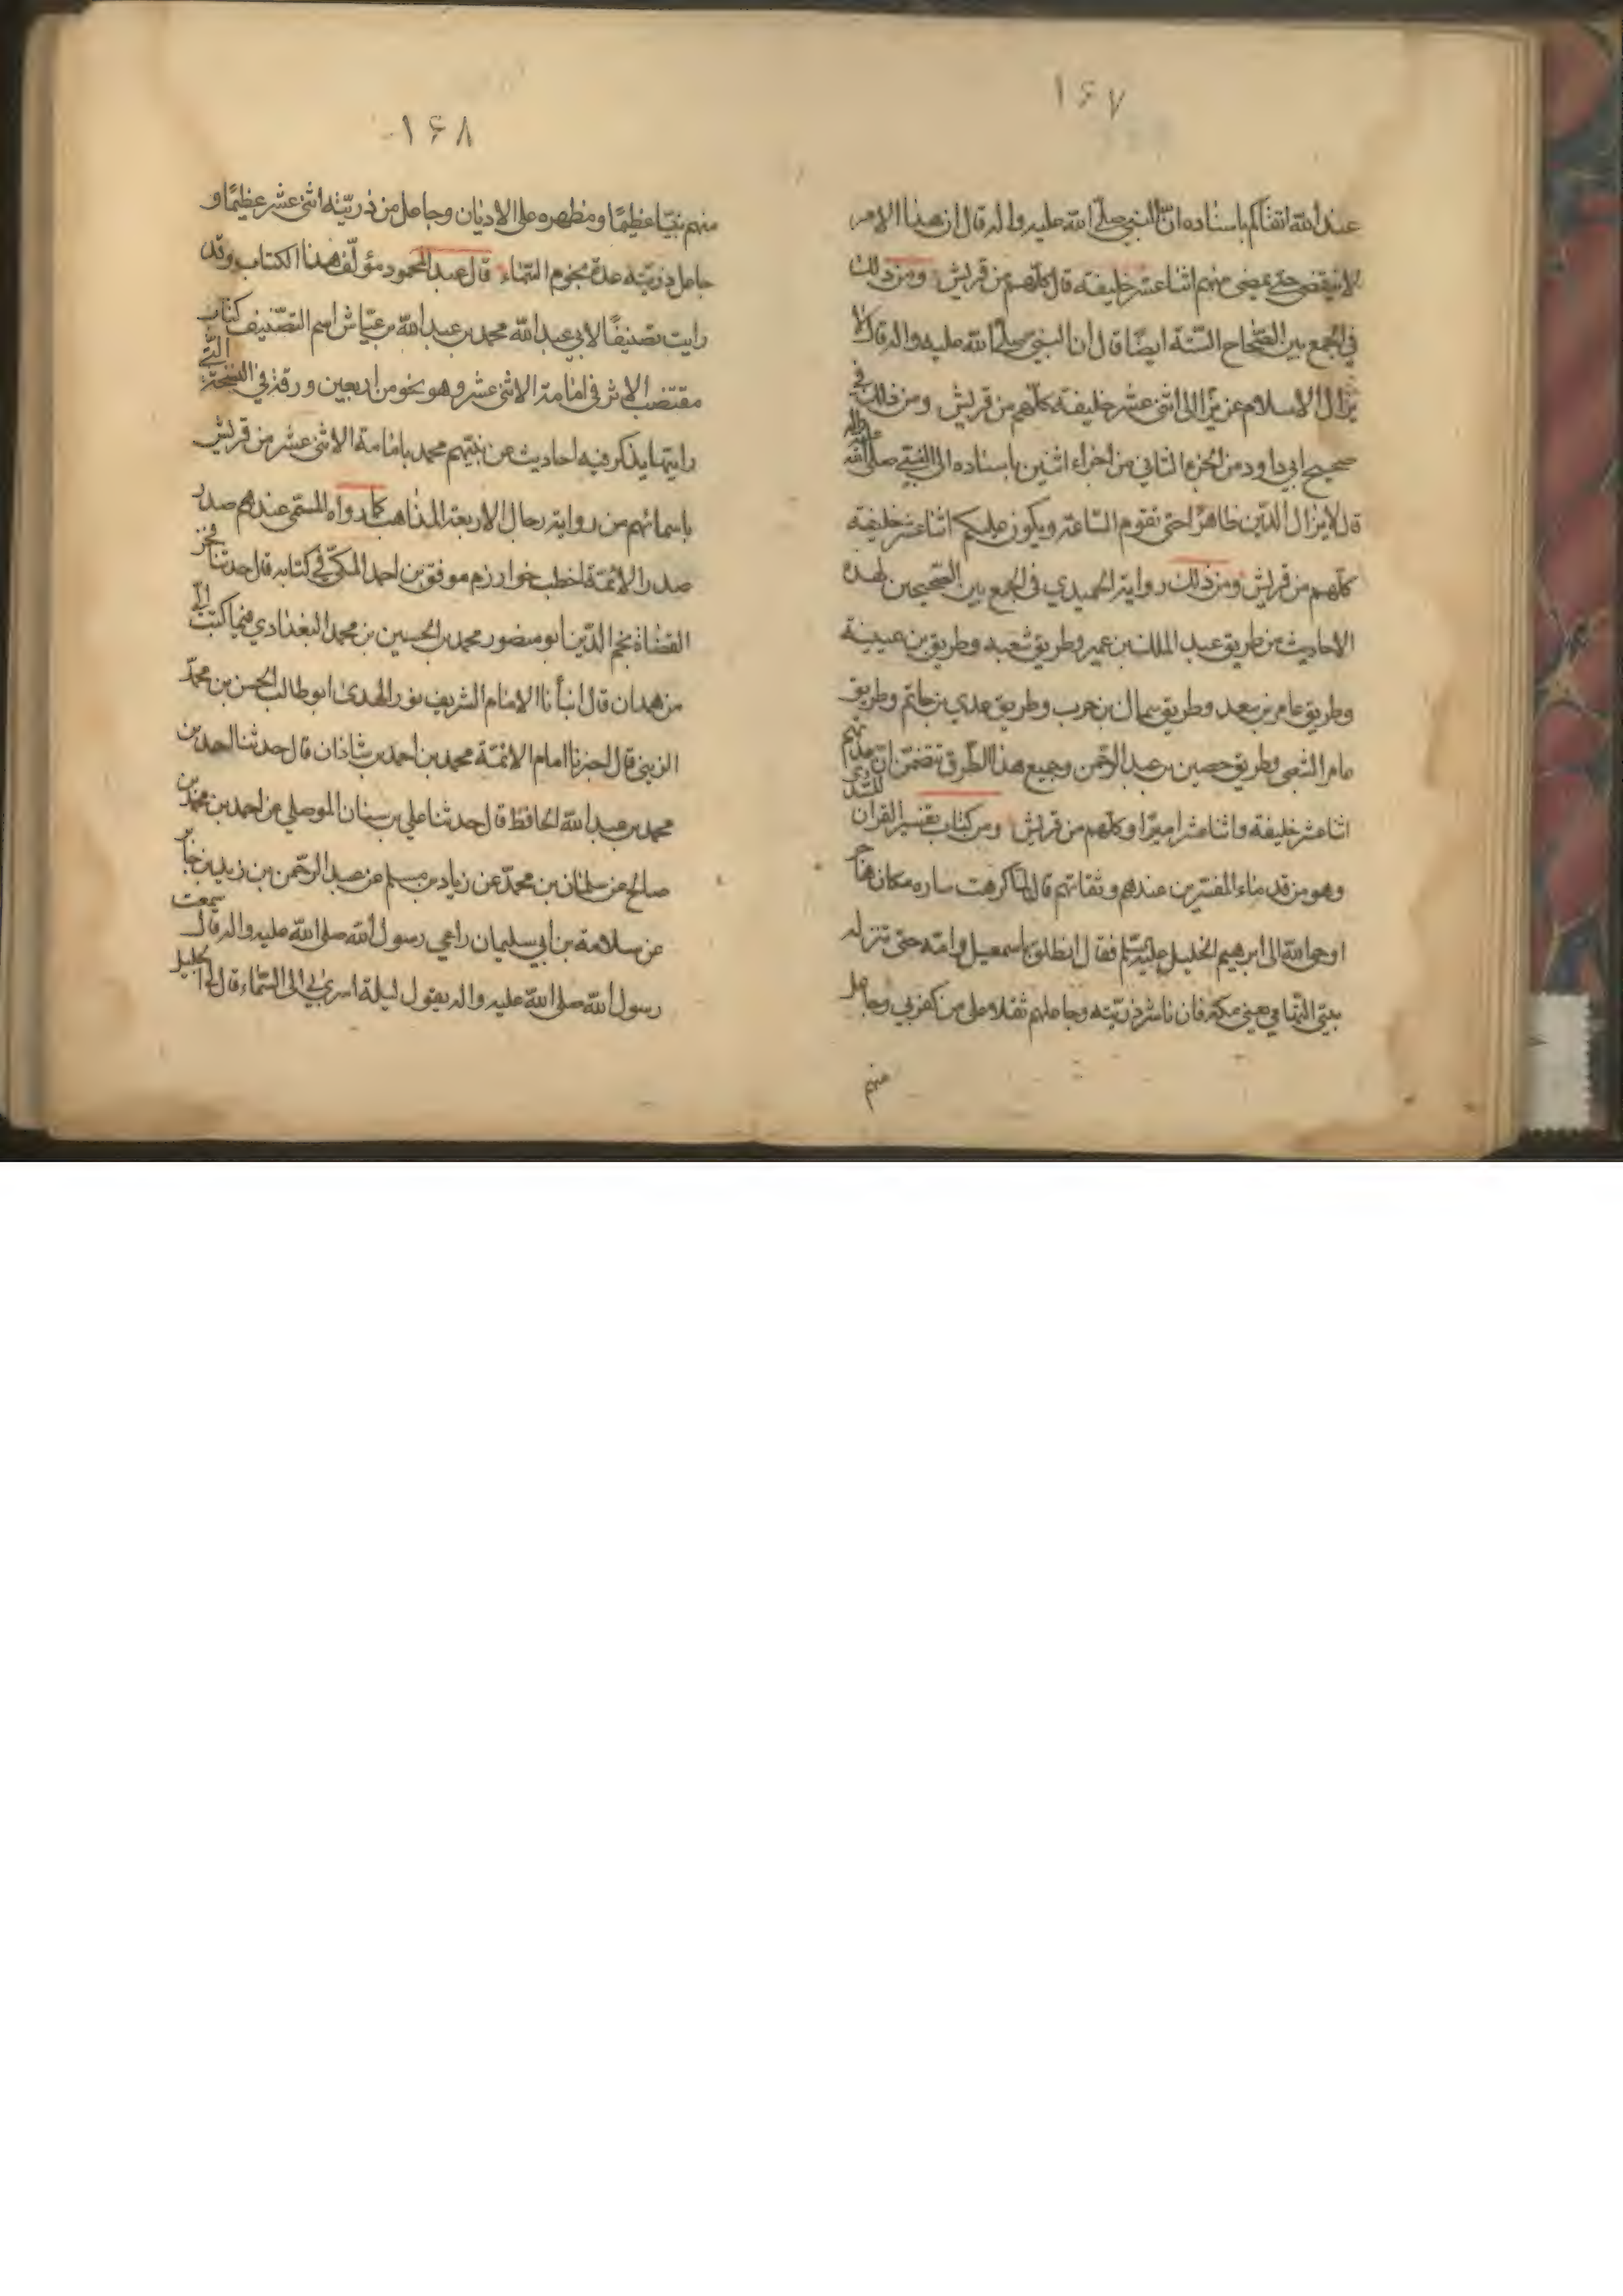 ١۶٧
عند الله اتقاكم باسناده ان النبي صلى الله عليه واله قال ان هذا الامر
لا ينقضي حتى يمضي منهم اثنا عشر خليفة قال كلهم من قريش ومن ذلك
في الجمع بين الصحاح الستة ايضا قال ان النبي صلى الله عليه واله قال لا
يزال الاسلام عزيزا الى اثنى عشر خليفة كلهم من قريش ومن ذلك في
صحيح ابي داود من الجزء الثاني من اجزاء اثنين باسناده الى النبي صلى الله عليه واله
قال لا يزال الدين ظاهرا حتى تقوم الساعة ويكون عليكم اثنا عشر خليفة
كلهم من قريش ومن ذلك رواية الحميدي في الجمع بين الصحيحين لهذه
الاحاديث من طريق عبد الملك بن عمير وطريق شعبه وطريق بن عيينة
وطريق عامر بن سعد وطريق سماك بن حرب وطريق عدي بن حاتم وطريق
عامر الشعبي وطريق حصين بن عبد الرحمن وجميع هذا الطرق تتضمن ان عدتهم
اثنا عشر خليفة واثنا عشر اميرا وكلهم من قريش ومن كتاب تفسير القران للسدي
وهو من قدماء المفسرين عندهم وثقاتهم قال لما كرهت ساره مكان هاجر
اوحى الله الى ابرهيم الخليل عليه السلم فقال انطلق باسمعيل وامه حتى تنزله
بيتي التهامي يعني مكة فان ناشر ذريته وجاعلهم ثقلا على من كفر بي وجاعل
منهم
١۶٨
منهم نبيا عظيما ومظهره على الاديان وجاعل من ذريته اثنى عشر عظيما و
جاعل ذريته عدة نجوم السماء قال عبد المحمود مؤلف هذا الكتاب وقد
رايت تصنيفا لابي عبد الله محمد بن عبد الله بن عياش اسم التصنيف كتاب
مقتضب الاثر في امامة الاثنى عشر وهو نحو من اربعين ورقة في النسخة التي
رايتها يذكر فيه احاديث عن نبيهم محمد بامامة الاثنى عشر من قريش
باسمائهم من رواية رجال الاربعة المذاهب كما رواه المسمى عندهم صدر
صدر الائمة اخطب خوارزم موفق بن احمد المكي في كتابه قال حدثنا فخر
القضاة نجم الدين ابو منصور محمد بن الحسين بن محمد البغدادي فيما كتبت الى
من همدان قال انبأنا الامام الشريف نور الهدى ابو طالب الحسن بن محمد
الزيني قال اخبرنا امام الائمة محمد بن احمد بن شاذان قال حدثنا احمد بن
محمد بن عبد الله الحافظ قال حدثنا علي بن سنان الموصلي عن احمد بن محمد بن
صالح عن سلمان بن محمد عن زياد بن مسلم عن عبد الرحمن بن زيد بن جابر
عن سلامة بن ابي سليمان راعي رسول الله صلى الله عليه واله قال سمعت
رسول الله صلى الله عليه واله يقول ليلة اسري بي الى السماء قال لي الجليل